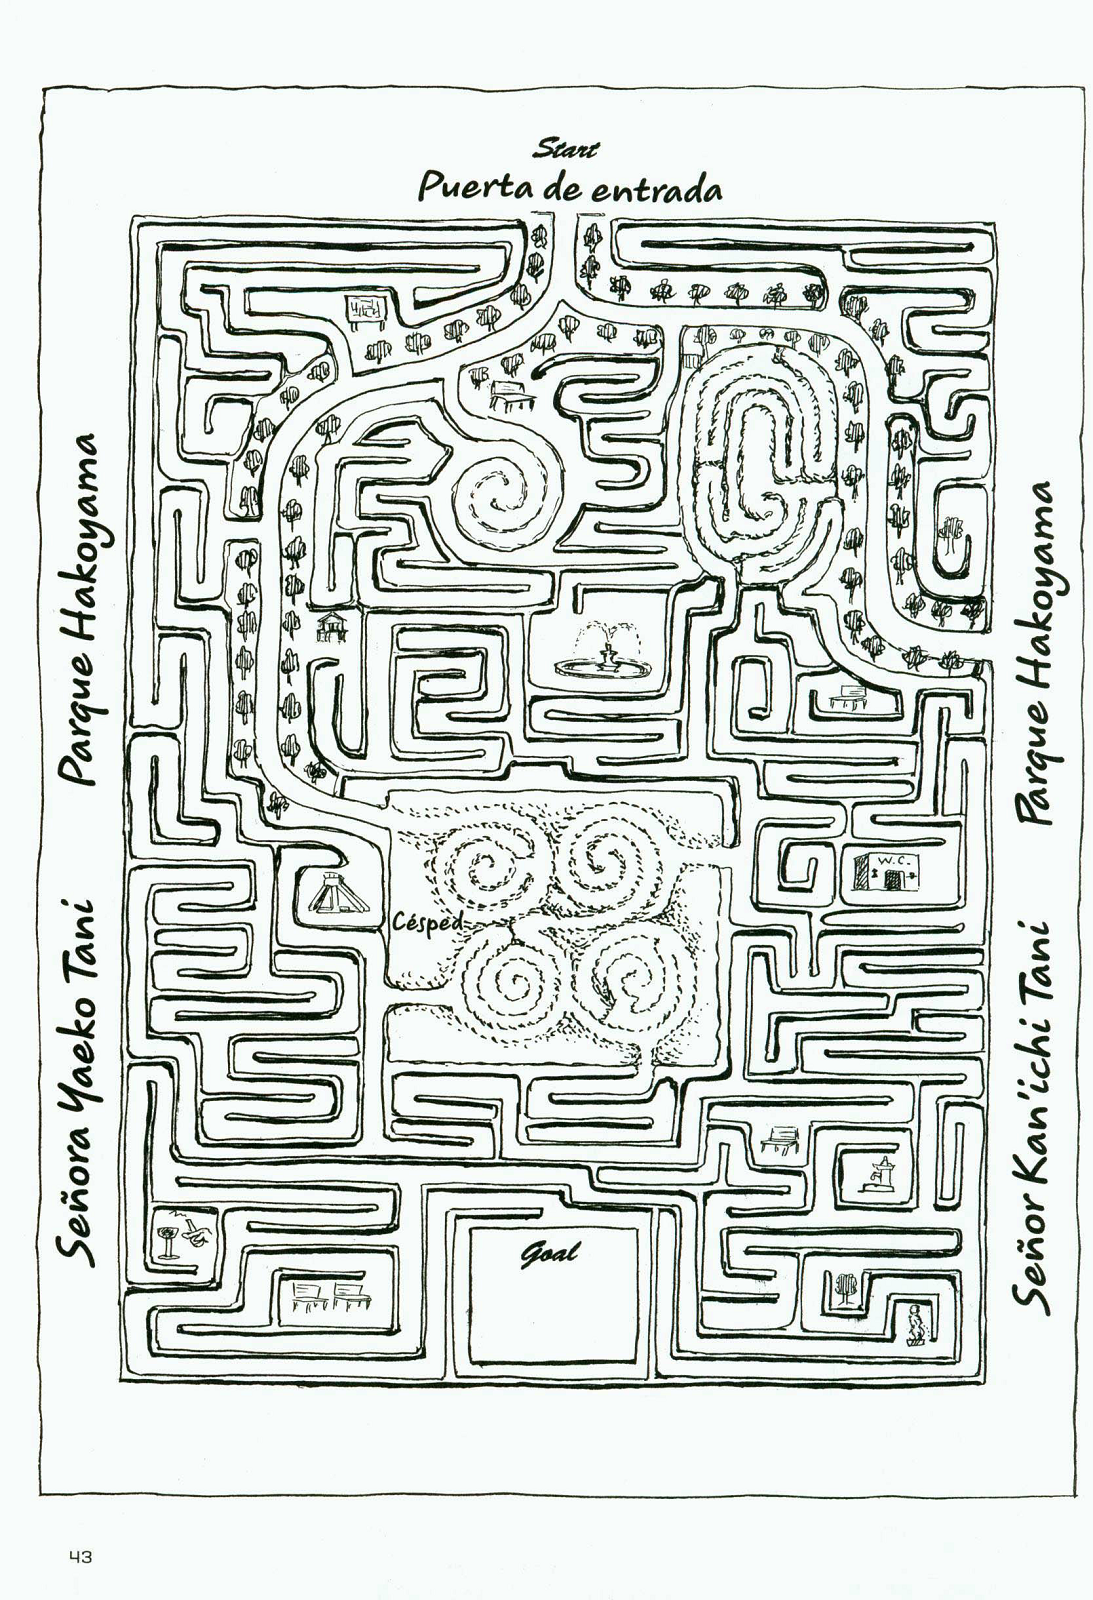 Start
Puerta de entrada
Parque Hakoyama
Señora Yaeko Tani
Parque Hakoyama
Señor Kan'ichi Tani
W.C.
Césped
Goal
43